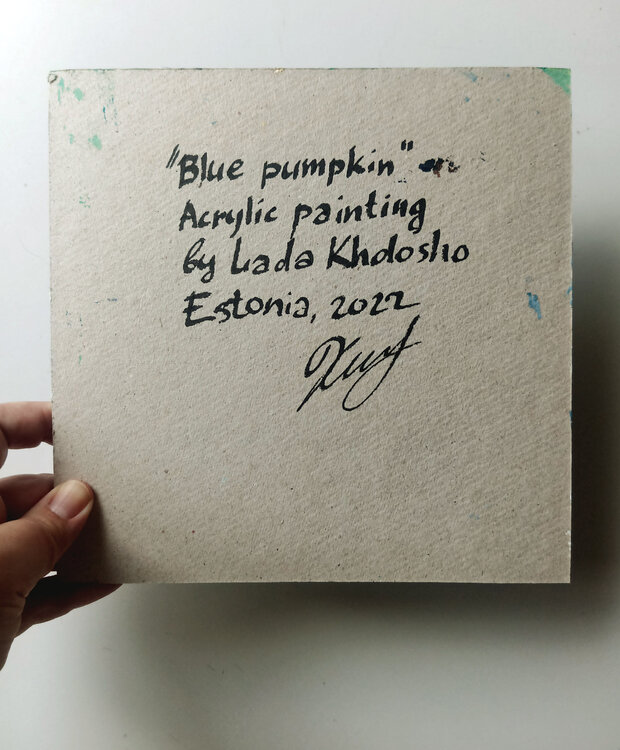 "Blue pumpkin" -
Acrylic painting
by Lada Kholosho
Estonia, 2022